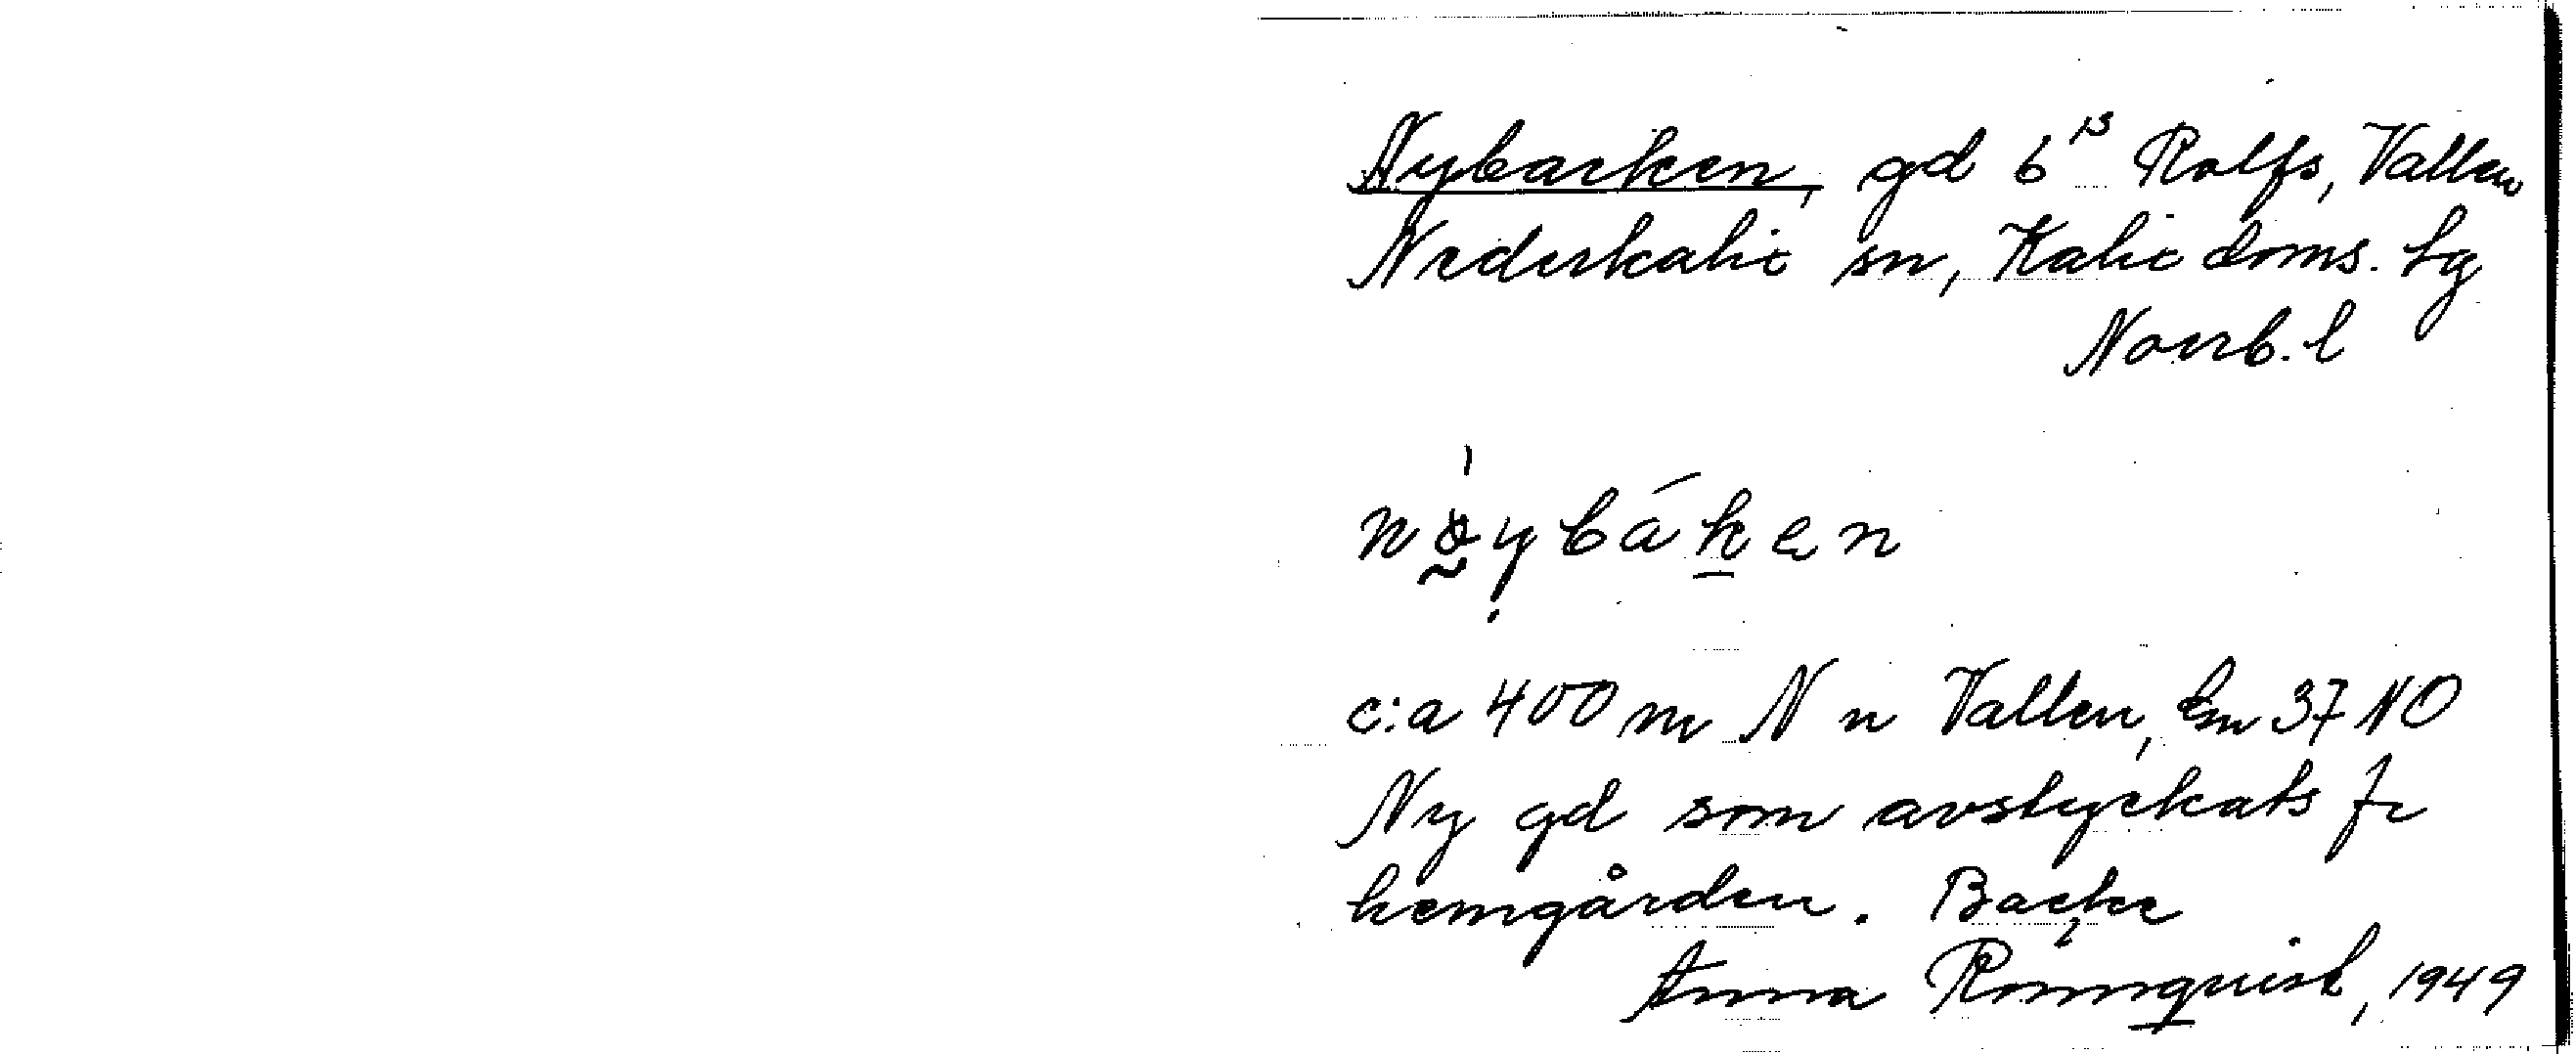 Nybacken, gd 6¹³ Rolfs, Vallen
Nederkalix sn, Kalix doms. tg
Norrb. l
nø̀ybáken
c:a 400 m N n Vallen, Em 37 NO
Ny gd som avstyckats fr
hemgården. Backe
Anna Ronnquist, 1949